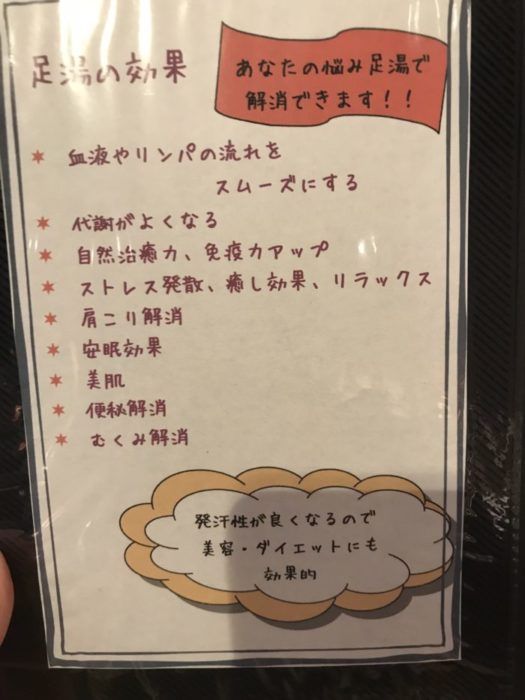 足湯の効果
あなたの悩み足湯で
解消できます！！
✶ 血液やリンパの流れを
スムーズにする
✶ 代謝がよくなる
✶ 自然治癒力、免疫力アップ
✶ ストレス発散、癒し効果、リラックス
✶ 肩こり解消
✶ 安眠効果
✶ 美肌
✶ 便秘解消
✶ むくみ解消
発汗性が良くなるので
美容・ダイエットにも
効果的